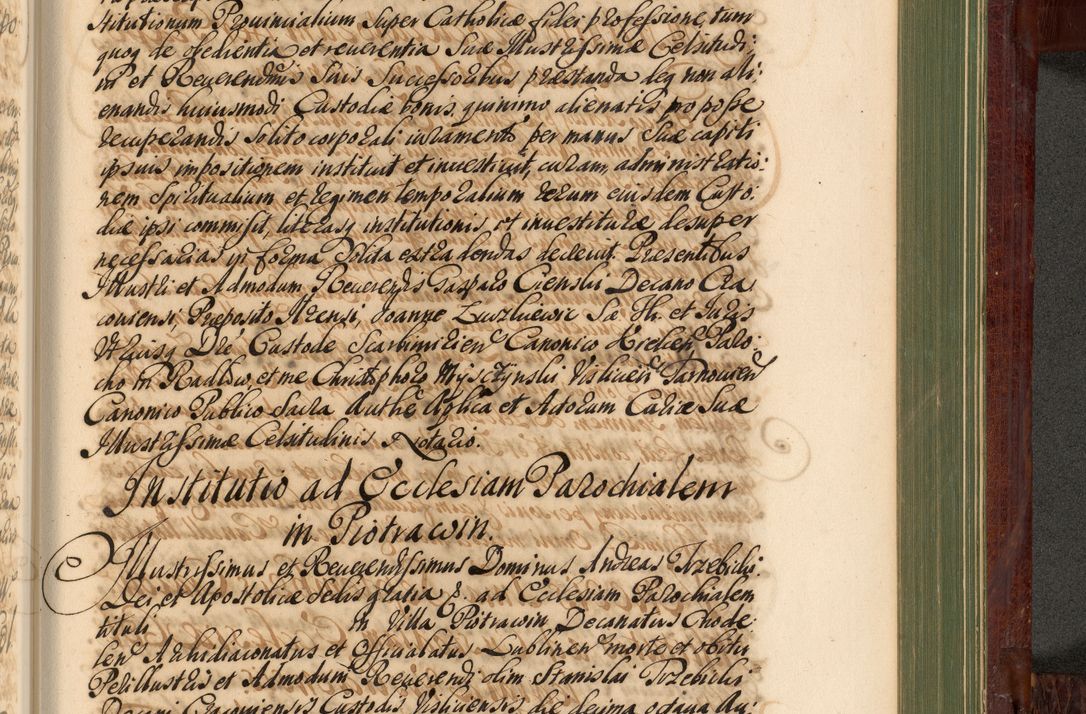 stitutionum Provincialium super Catholicæ fidei professione, tum
quoq de obedientia et reverentia Suæ Illustrissimæ Celsitudi:
ni et Reverendmis Suis Successoribus præstanda deq non ali:
enandis huiusmodi Custodiæ bonis, quinimo alienatis pro posse
recuperandis solito corporali iuramento per manus Suæ capiti
ipsius impositionem instituit et investivit, curam, administratio:
nem Spiritualium et regimen temporalium rerum eiusdem Custo:
diæ ipsi commisit, literasq institutionis et investituræ desuper
necessarias in forma solita extradendas decrevit. Præsentibus
Illustri et Admodum Reverendis Gasparo Cienski Decano Cra
coviensi, Præposito Ilzensi, Joanne Sæ Th. et Juris
Utriusq Dre Custode Scarbimirien Canonico Paro:
cho in Radłow, et me Christophoro Mysczynski Vislicien Tarnovien
Canonico Publico Sacra Authe Aplica et Actorum Curiæ Suæ
Illustrissimæ Celsitudinis Notario.
Institutio ad Ecclesiam Parochialem
in Piotrawin.
Illustrissimus et Reverendissimus Dominus Andreas Trzebicki
Dei et Apostolicæ Sedis gratia p. ad Ecclesiam Parochialem
tituli in Villa Piotrawin Decanatus Chode:
len Archidiaconatus et Officialatus Lublinen morte et obitu
Perillustris et Admodum Reverendi olim Stanislai Trzebicki
Decani Custodis Visliciensis die decima octava Au: